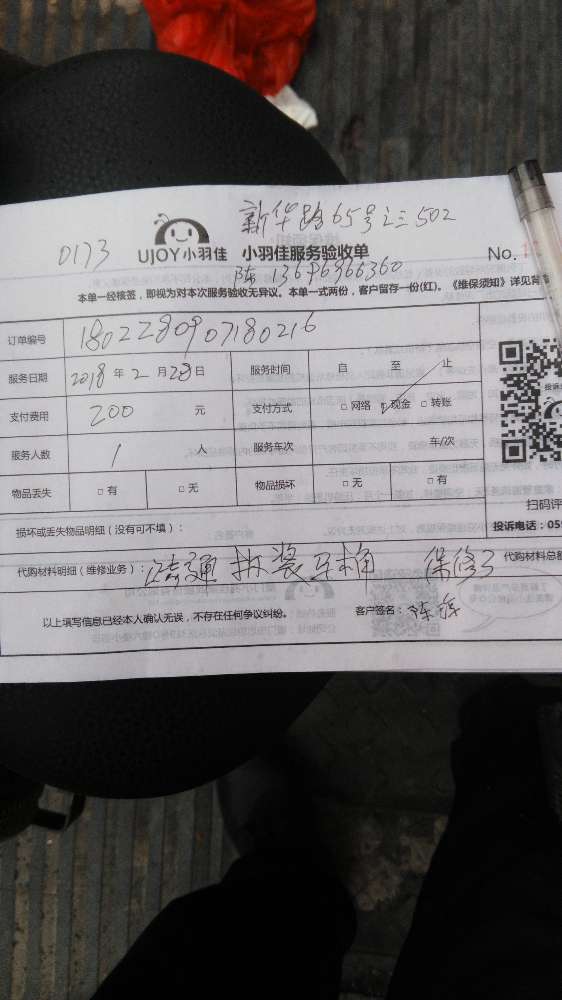 新华路65号之三502
0173 UJOY小羽佳 小羽佳服务验收单 No.1
陈 13696966360
本单一经核签,即视为对本次服务验收无异议。本单一式两份,客户留存一份(红)。《维保须知》详见背
订单编号 1802280907180216
服务日期 2018 年 2 月 28 日 服务时间 自 至 止
支付费用 200 元 支付方式 □网络 □现金 □转账
服务人数 1 人 服务车次 车/次
物品丢失 □有 □无 物品损坏 □无 □有
扫码评
损坏或丢失物品明细(没有可不填): 投诉电话:05
代购材料明细(维修业务): 疏通 拆装马桶 保修3 代购材料总
以上填写信息已经本人确认无误,不存在任何争议纠纷。 客户签名: 陈